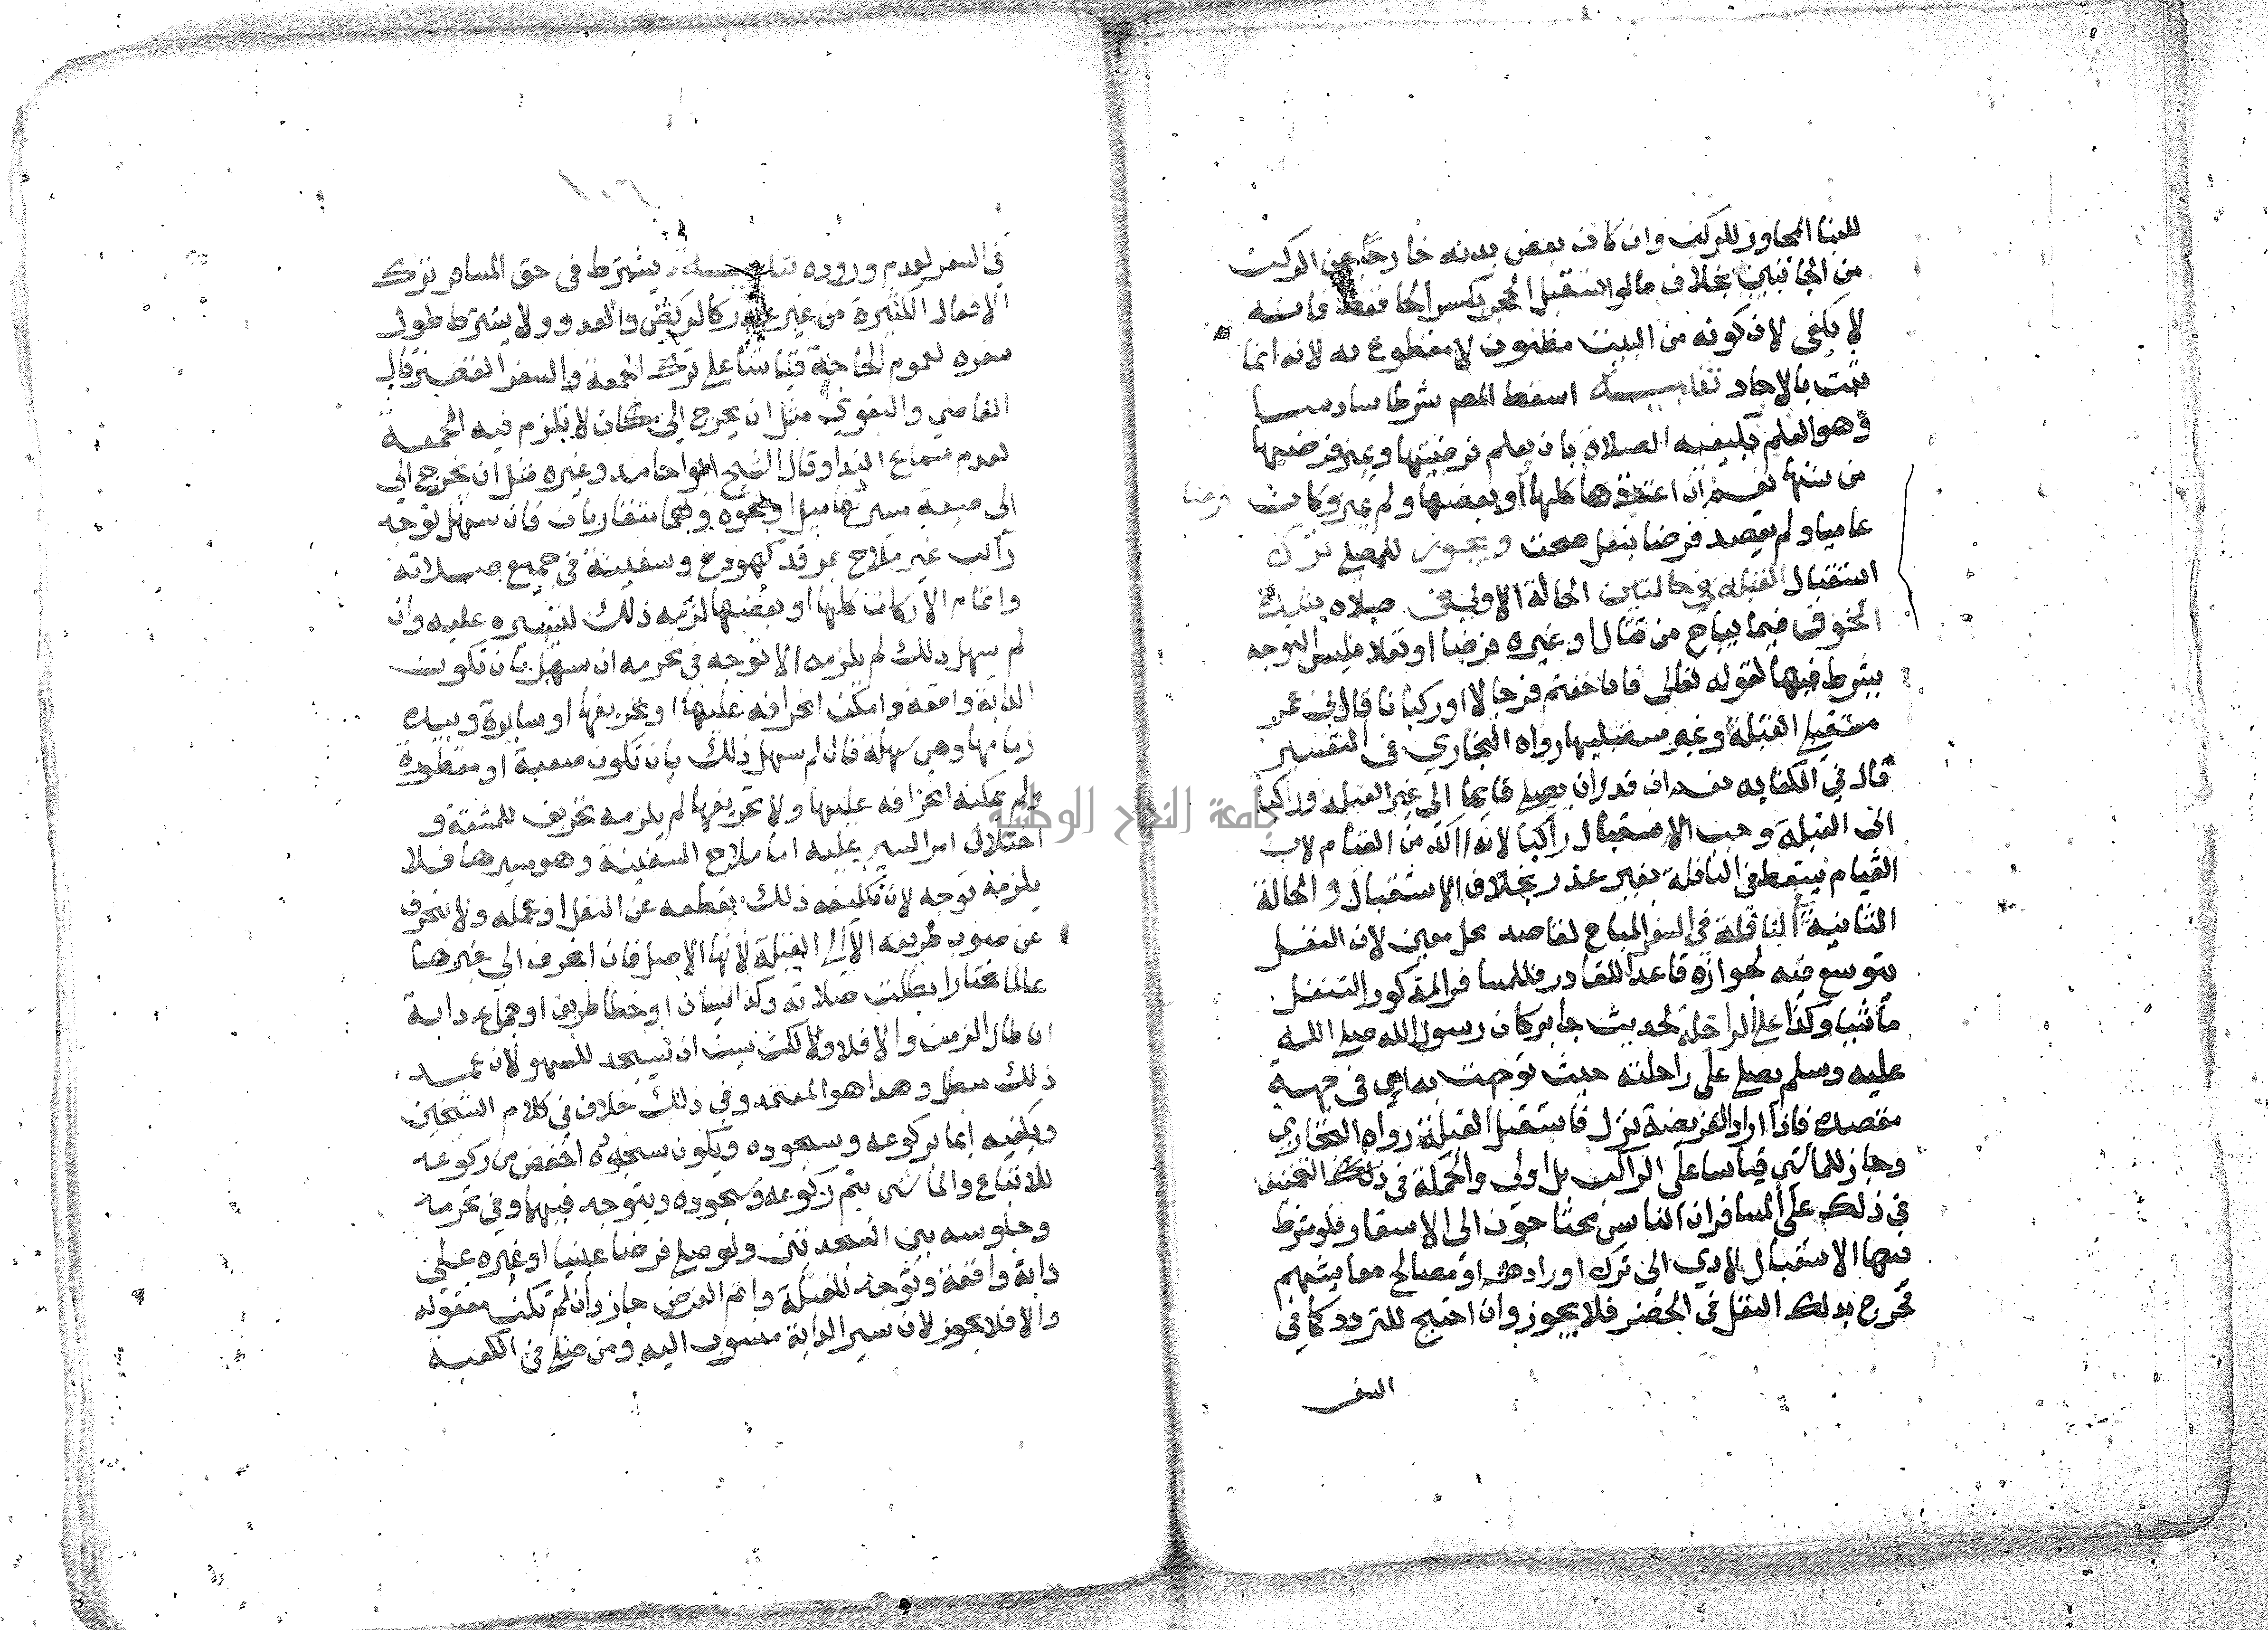 للبنا المجاور للركن وان كان بعض بدنه خارجا عن الركن
من الجانبين بخلاف ما لو استقبل الحجر بكسر الحا فقط فانه
لا يكفى لان كونه من البيت مظنون لا مقطوع به لانه انما
ثبت بالاحاد تنبيه اسقط المص شرطا سادسا
وهو العلم بكيفيه الصلاة بان يعلم فرضيتها ويميز فرضها
من سننها نعم ان اعتقدها كلها او بعضها ولم يميز وكان
فرضا
عاميا ولم يقصد فرضا بنفل صحت ويجوز للمصلى ترك
استقبال القبلة فى حالتين الحالة الاولى فى صلاه شدة
الخوف فيما يباح من قتال او غيره فرضا او نفلا فليس التوجه
بشرط فيها لقوله تعالى فان خفتم فرجالا او ركبانا قال بن عمر
مستقبلى القبلة وغير مستقبليها رواه البخارى فى التفسير
قال فى الكفايه نعم ان قدر ان يصلى قايما الى غير القبلة وراكبا
الى القبلة وجب الاستقبال راكبا لانه اكد من القيام لان
القيام يسقط فى النافلة بغير عذر بخلاف الاستقبال والحالة
الثانية النافلة فى السفر المباح لقاصد محل معين لان النفل
يتوسع فيه لجوازه قاعدا للقادر فللمسافر المذكور التنفل
ماشيا وكذا على الراحلة لحديث جابر كان رسول الله صلى الله
عليه وسلم يصلى على راحلته حيث توجهت به اى فى جهة
مقصده فاذا اراد الفريضة نزل فاستقبل القبلة رواه البخارى
وجاز للماشى قياسا على الراكب بل اولى والحكمة فى ذلك التخفيف
فى ذلك على المسافر ان الناس محتاجون الى الاسفار فلو شرط
فيها الاستقبال لادى الى ترك اورادهم او مصالح معايشهم
فخرج بذلك النفل فى الحضر فلا يجوز وان احتيج للتردد كما فى
السفر
١٠٦
فى السفر لعدم وروده تنبيه يشترط فى حق المسافر ترك
الافعال الكثيرة من غير عذر كالركض والعدو ولا يشترط طول
سفره لعموم الحاجة قياسا على ترك الجمعة والسفر القصير قال
القاضى والبغوى مثل ان يخرج الى مكان لا تلزم فيه الجمعة
لعدم سماع الندا وقال الشيخ ابوا حامد وغيره مثل ان يخرج الى
الى ضيعة مسيرتها ميل او نحوه وهما متقاربان فان سهل توجه
راكب غير ملاح بمرقد كهودج وسفينة فى جميع صلاته
واتمام الاركان كلها او بعضها لزمه ذلك لتيسره عليه وان
لم يسهل ذلك لم يلزمه الا توجه فى تحرمه ان سهل بان تكون
الدابة واقفة وامكن انحرافه عليها او تحريفها او سايرة وبيده
زمامها وهى سهلة فان لم يسهل ذلك بان تكون صعبة او مقطورة
ولم يمكنه انحرافه عليها ولا تحريفها لم يلزمه تحريف للمشقة و
اختلال امر السير عليه اما ملاح السفينة وهو مسيرها فلا
يلزمه توجه لان تكليفه ذلك يقطعه عن النفل او عمله ولا ينحرف
عن صوب طريقه الا الى القبلة لانها الاصل فان انحرف الى غيرها
عالما مختارا بطلت صلاته وكذا لنسيان او خطا طريق او جماح دابة
ان طال الزمن والا فلا ولاكن يسن ان يسجد للسهو لان عمد
ذلك مبطل وهذا هو المعتمد وفى ذلك خلاف فى كلام الشيخين
ويكفيه ايما بركوعه وسجوده ويكون سجوده اخفض من ركوعه
للاتباع والماشى يتم ركوعه وسجوده ويتوجه فيهما وفى تحرمه
وجلوسه بين السجدتين ولو صلى فرضا عينيا او غيره على
دابة واقفة وتوجه للقبلة واتم الفرض جاز وان لم تكن معقوله
والا فلا يجوز لان سير الدابة منسوب اليه ومن صلى فى الكعبة
جامعة النجاح الوطنية